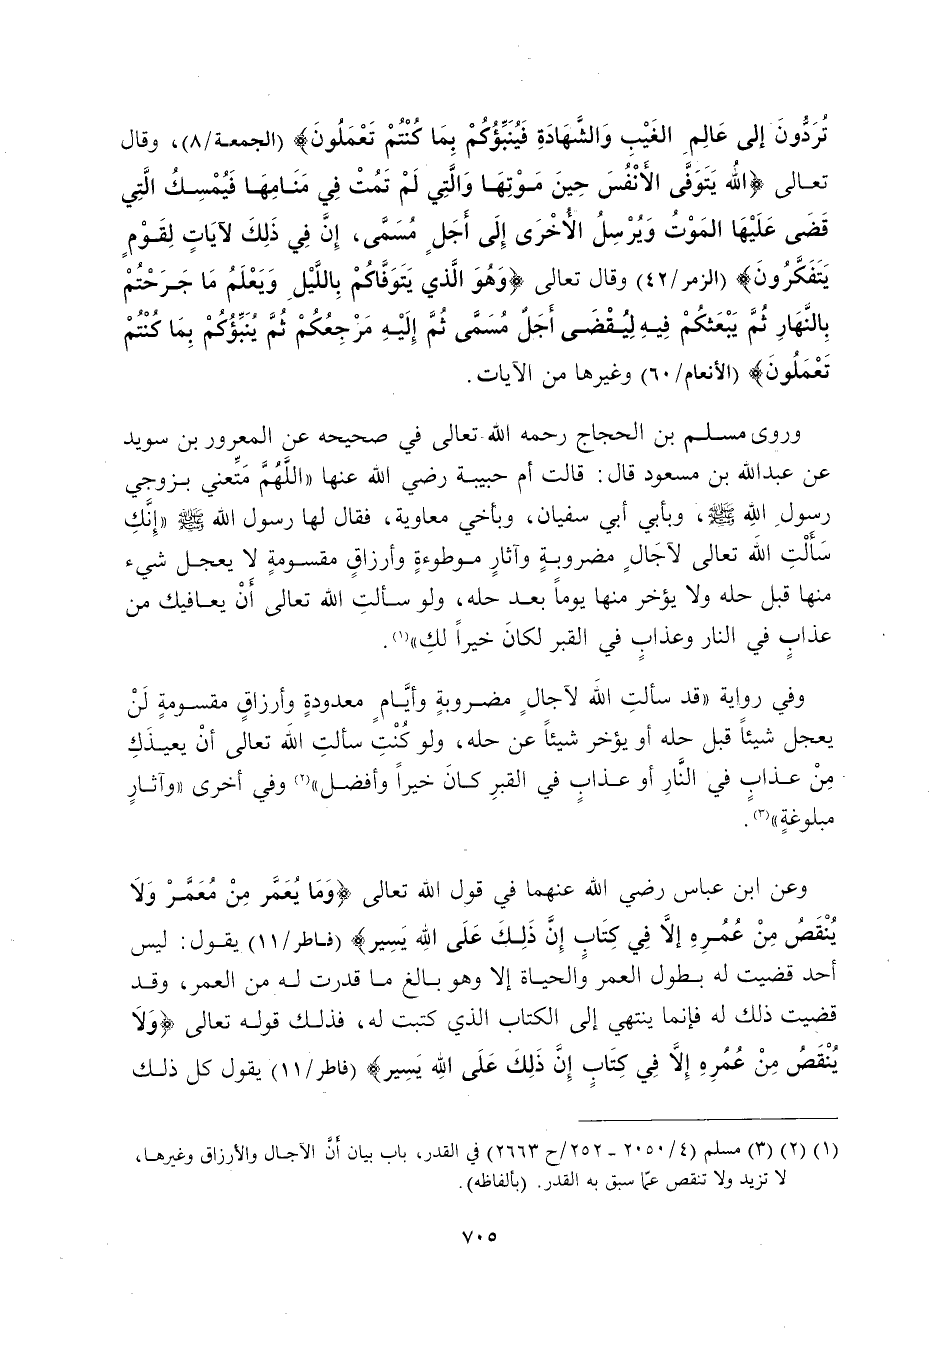 تُرَدُّونَ إلى عَالِمِ الغَيْبِ وَالشَّهَادَةِ فَيُنَبِّؤُكُمْ بِمَا كُنْتُمْ تَعْمَلُونَ﴾ (الجمعة/٨)، وقال
تعالى ﴿اللهُ يَتَوَفَّى الأَنْفُسَ حِينَ مَوْتِهَا وَالَّتِي لَمْ تَمُتْ فِي مَنَامِهَا فَيُمْسِكُ الَّتِي
قَضَى عَلَيْهَا المَوْتُ وَيُرْسِلُ الأُخْرَى إِلَى أَجَلٍ مُسَمَّى، إِنَّ فِي ذَلِكَ لآيَاتٍ لِقَوْمٍ
يَتَفَكَّرُونَ﴾ (الزمر/٤٢) وقال تعالى ﴿وَهُوَ الَّذي يَتَوَفَّاكُمْ بِاللَّيْلِ وَيَعْلَمُ مَا جَرَحْتُمْ
بِالنَّهَارِ ثُمَّ يَبْعَثكُمْ فِيهِ لِيُقْضَى أَجَلٌ مُسَمَّى ثُمَّ إِلَيْهِ مَرْجِعُكُمْ ثُمَّ يُنَبِّؤُكُمْ بِمَا كُنْتُمْ
تَعْمَلُونَ﴾ (الأنعام/٦٠) وغيرها من الآيات.
وروى مسلم بن الحجاج رحمه الله تعالى في صحيحه عن المعرور بن سويد
عن عبدالله بن مسعود قال: قالت أم حبيبة رضي الله عنها «اللَّهُمَّ مَتِّعني بزوجي
رسولِ اللهِ ﷺ، وبأبي أبي سفيان، وبأخي معاوية، فقال لها رسول الله ﷺ «إِنَّكِ
سَأَلْتِ اللهَ تعالى لآجَالٍ مضروبةٍ وآثارٍ موطوءةٍ وأرزاقٍ مقسومةٍ لا يعجل شيء
منها قبل حله ولا يؤخر منها يوماً بعد حله، ولو سألتِ الله تعالى أَنْ يعافيك من
عذابٍ في النار وعذابٍ في القبر لكانَ خيراً لكِ»(١).
وفي رواية «قد سألتِ اللهَ لآجالٍ مضروبةٍ وأيَّامٍ معدودةٍ وأرزاقٍ مقسومةٍ لَنْ
يعجل شيئاً قبل حله أو يؤخر شيئاً عن حله، ولو كُنْتِ سألتِ الله تعالى أنْ يعيذَكِ
مِنْ عذابٍ في النَّارِ أو عذابٍ في القبرِ كانَ خيراً وأفضل»(٢) وفي أخرى «وآثارٍ
مبلوغةٍ»(٣).
وعن ابن عباس رضي الله عنهما في قول الله تعالى ﴿وَمَا يُعَمَّر مِنْ مُعَمَّرْ وَلَا
يُنْقَصُ مِنْ عُمُرِهِ إلَّا فِي كِتَابٍ إنَّ ذَلِكَ عَلَى اللهِ يَسِير﴾ (فاطر/١١) يقول: ليس
أحد قضيت له بطول العمر والحياة إلا وهو بالغ ما قدرت له من العمر، وقد
قضيت ذلك له فإنما ينتهي إلى الكتاب الذي كتبت له، فذلك قوله تعالى ﴿وَلَا
يُنْقَصُ مِنْ عُمُرِهِ إلَّا فِي كِتَابٍ إنَّ ذَلِكَ عَلَى اللهِ يَسِير﴾ (فاطر/١١) يقول كل ذلك
(١) (٢) (٣) مسلم (٤/٢٠٥٠ - ٢٥٢/ح ٢٦٦٣) في القدر، باب بيان أَنَّ الآجال والأرزاق وغيرها،
لا تزيد ولا تنقص عمّا سبق به القدر. (بألفاظه).
٧٠٥